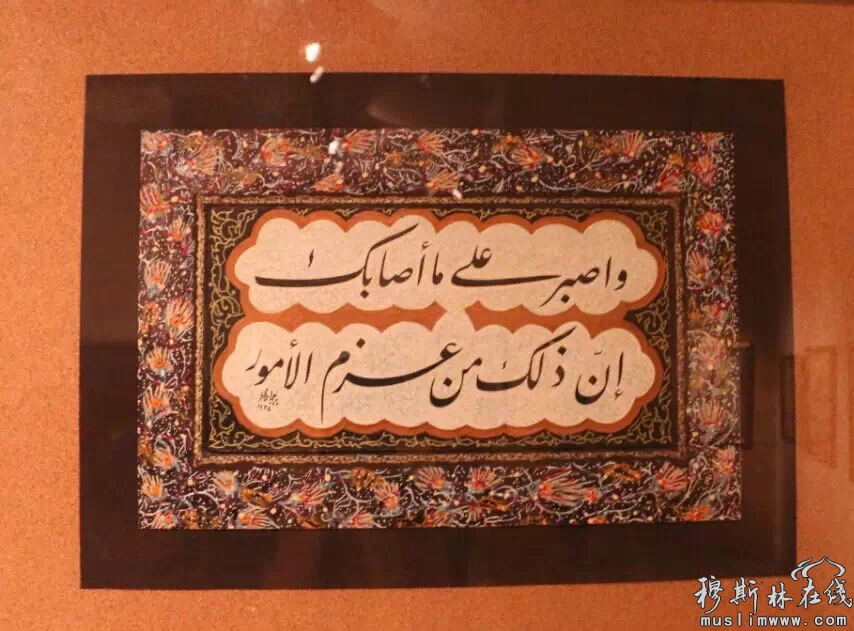 واصبر على ما أصابك
إنّ ذلك من عزم الأمور
穆斯林在线
muslimwww.com